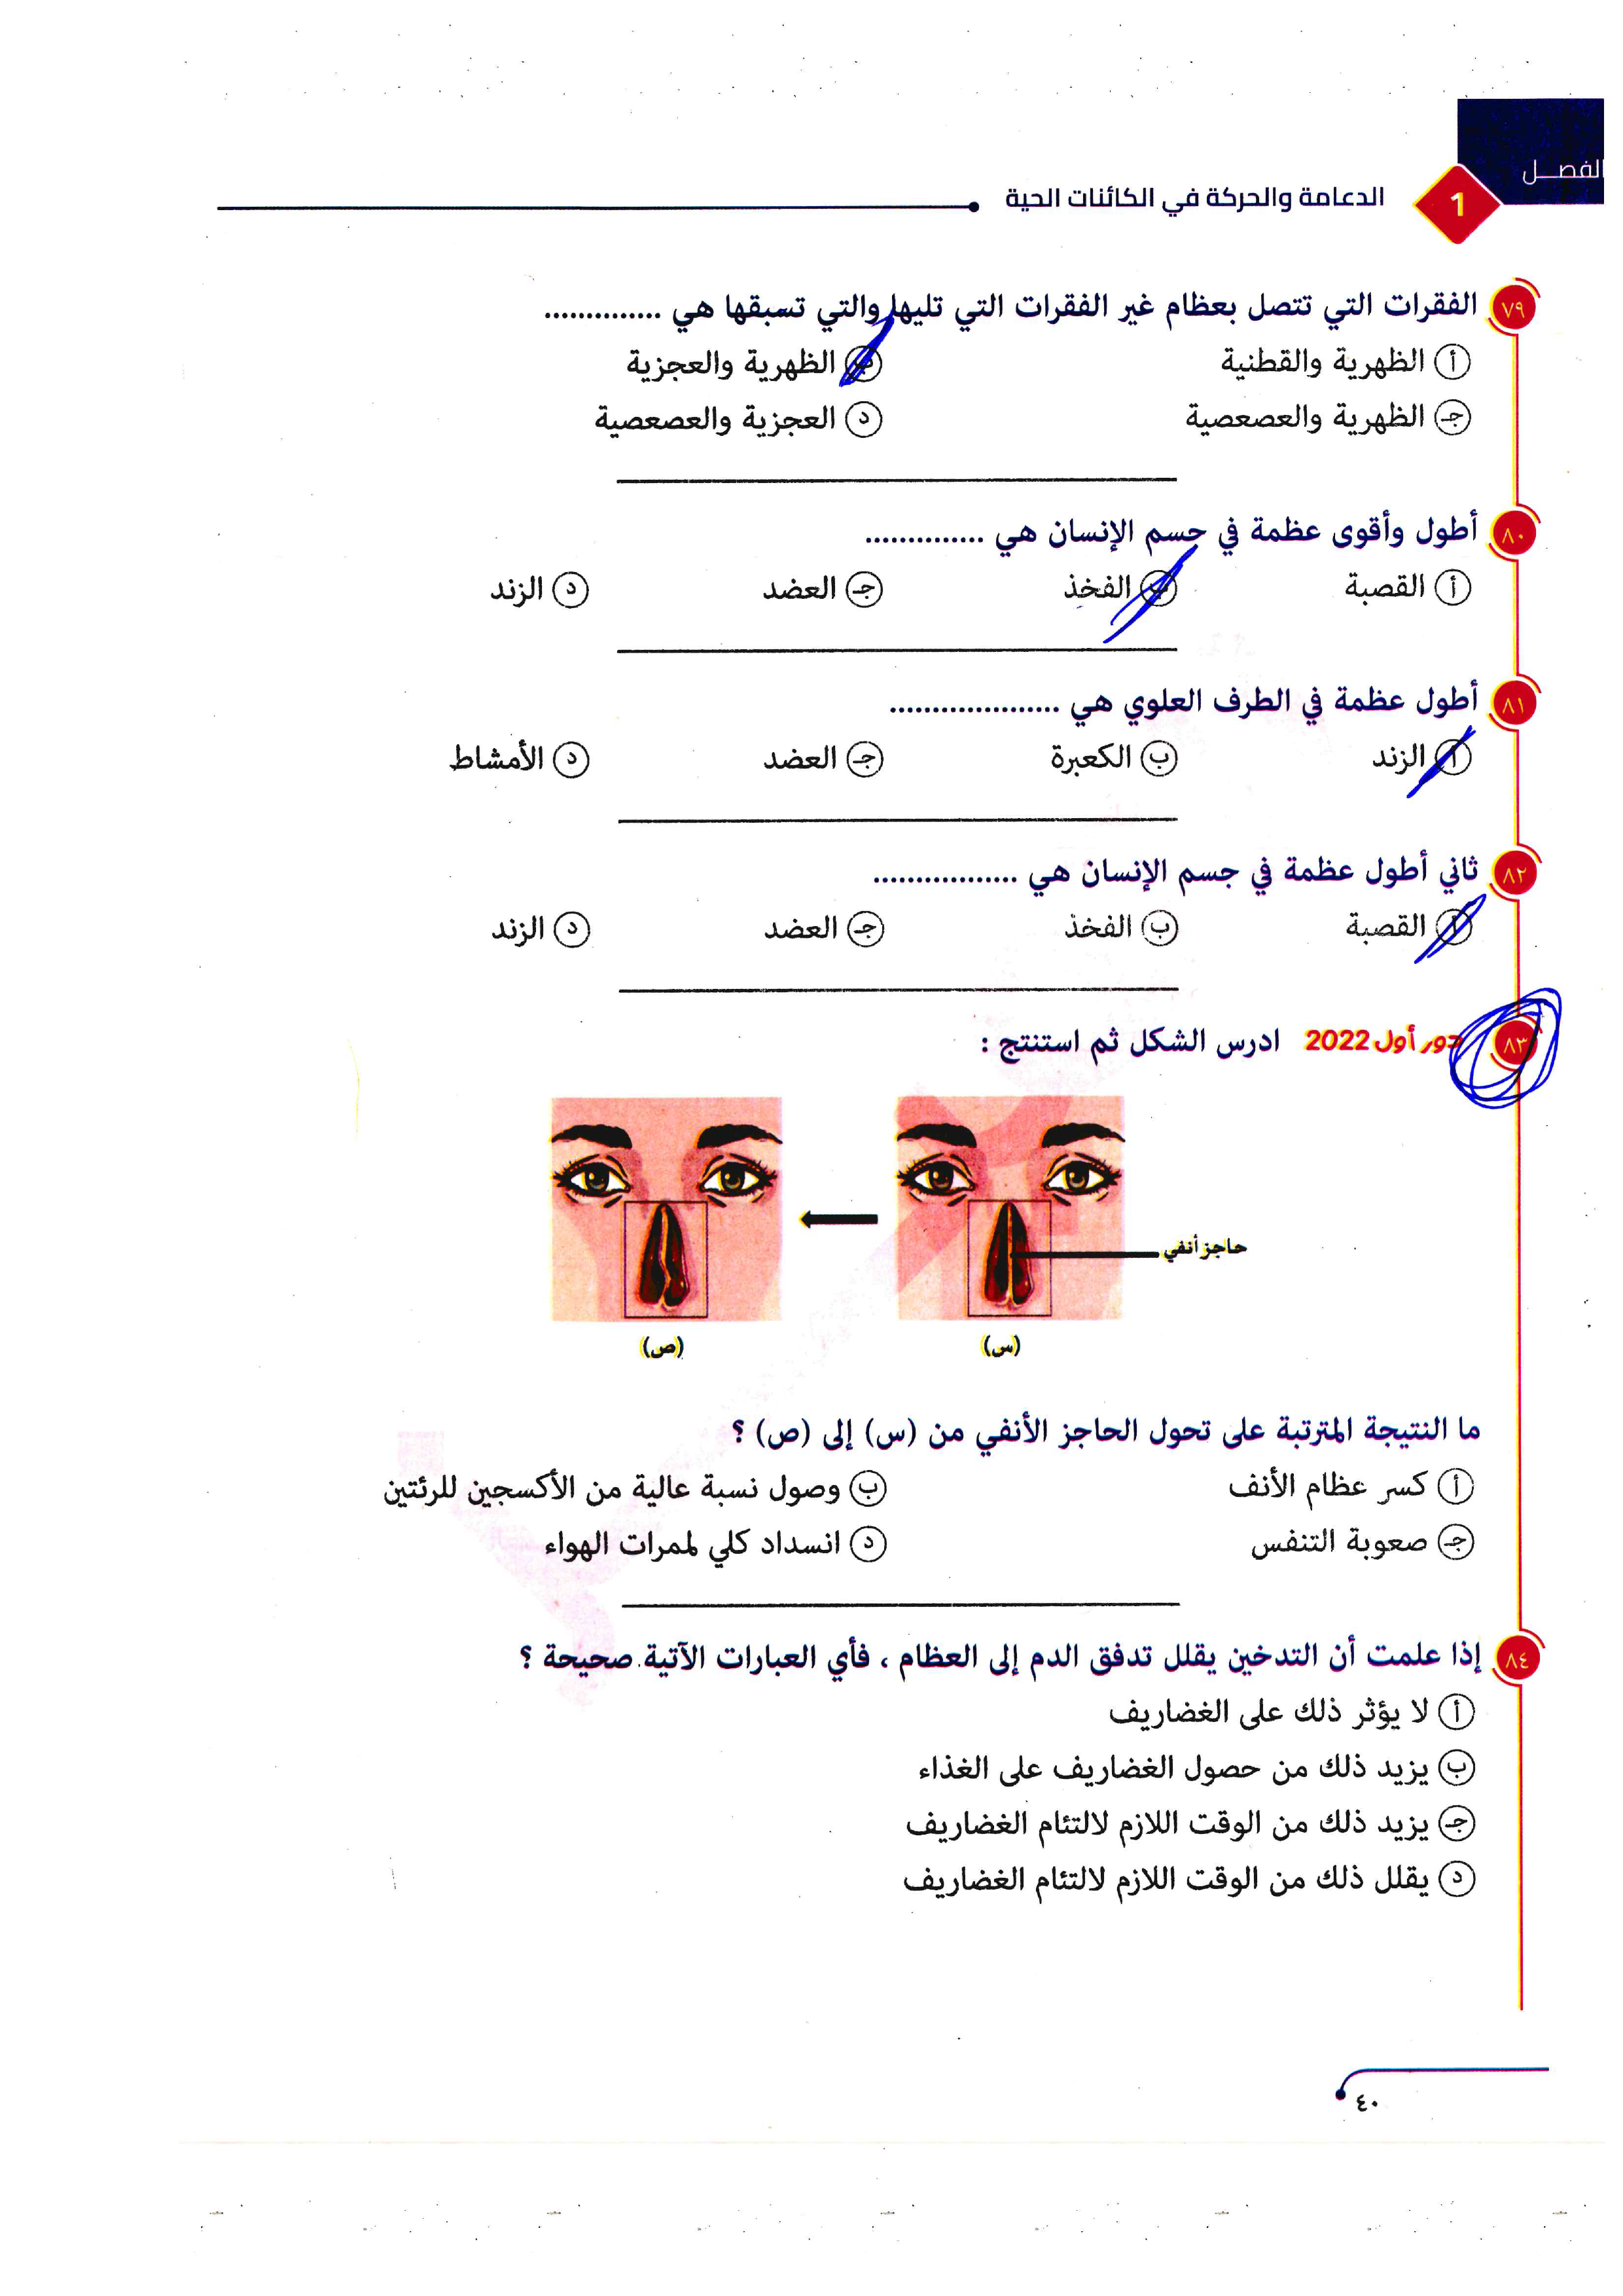 الفصل
1
الدعامة والحركة في الكائنات الحية
٧٩ الفقرات التي تتصل بعظام غير الفقرات التي تليها والتي تسبقها هي ..............
أ الظهرية والقطنية ب الظهرية والعجزية
جـ الظهرية والعصعصية د العجزية والعصعصية
٨٠ أطول وأقوى عظمة في جسم الإنسان هي ..............
أ القصبة ب الفخذ جـ العضد د الزند
٨١ أطول عظمة في الطرف العلوي هي ....................
أ الزند ب الكعبرة جـ العضد د الأمشاط
٨٢ ثاني أطول عظمة في جسم الإنسان هي .................
أ القصبة ب الفخذ جـ العضد د الزند
٨٣ دور أول 2022 ادرس الشكل ثم استنتج :
حاجز أنفي
(س) (ص)
ما النتيجة المترتبة على تحول الحاجز الأنفي من (س) إلى (ص) ؟
أ كسر عظام الأنف ب وصول نسبة عالية من الأكسجين للرئتين
جـ صعوبة التنفس د انسداد كلي لممرات الهواء
٨٤ إذا علمت أن التدخين يقلل تدفق الدم إلى العظام ، فأي العبارات الآتية صحيحة ؟
أ لا يؤثر ذلك على الغضاريف
ب يزيد ذلك من حصول الغضاريف على الغذاء
جـ يزيد ذلك من الوقت اللازم لالتئام الغضاريف
د يقلل ذلك من الوقت اللازم لالتئام الغضاريف
٤٠